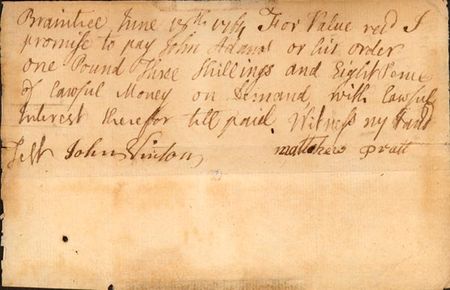 Braintree June 12th 1761 For Value recd I
promise to pay John Adams or his order
one Pound Three Shillings and Eight Pence
of lawful Money on Demand, with lawful
Interest therefor till paid Witness my hand
Test John Vinton Matthew Pratt